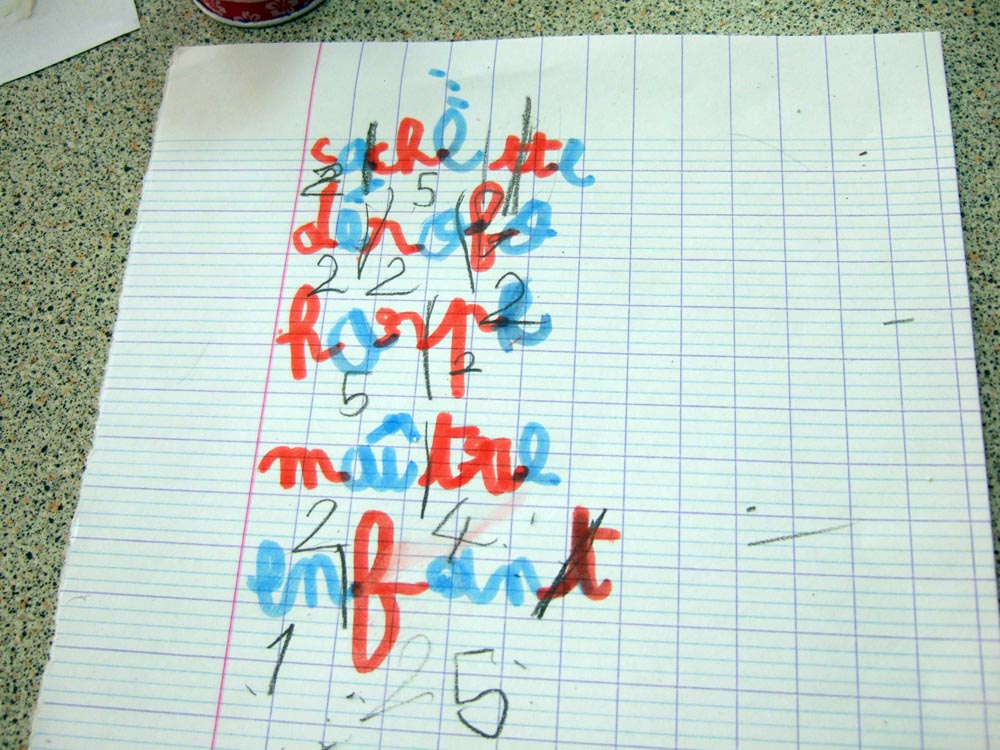 sachètte
2 5
dérobe
2 2 2
harpe
5 2
maître
2 4
enfant
1 2 5